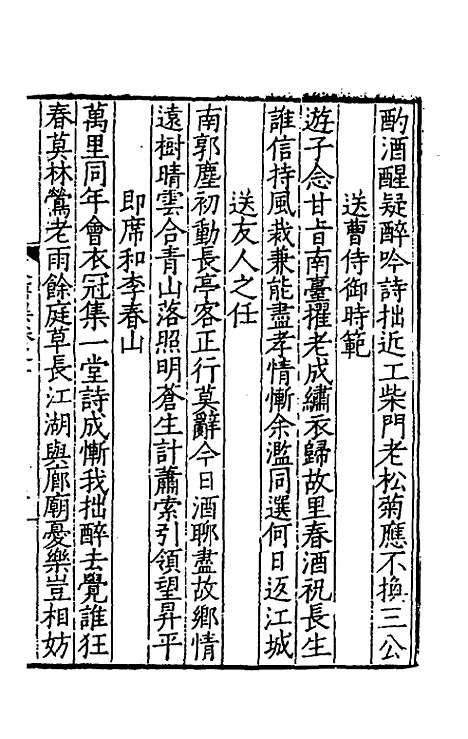 酌酒醒疑醉吟詩拙近工柴門老松菊應不換三公
送曹侍御時範
遊子念甘旨南臺擢老成繡衣歸故里春酒祝長生
誰信持風裁兼能盡孝情慚余濫同選何日返江城
送友人之任
南郭塵初動長亭客正行莫辭今日酒聊盡故鄉情
遠樹晴雲合青山落照明蒼生計蕭索引領望昇平
即席和李春山
萬里同年會衣冠集一堂詩成慚我拙醉去覺誰狂
春莫林鶯老雨餘庭草長江湖與廊廟憂樂豈相妨